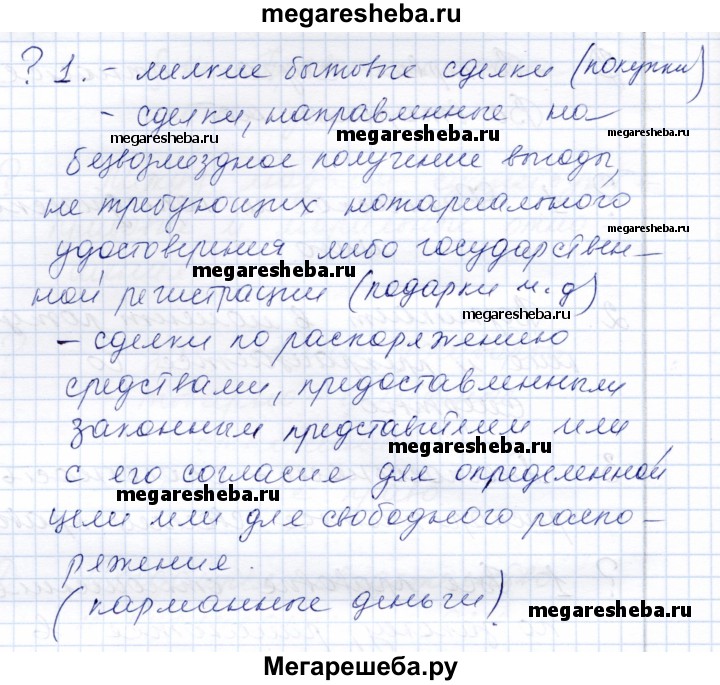 megaresheba.ru
? 1. - мелкие бытовые сделки (покупки)
- сделки, направленные на
megaresheba.ru megaresheba.ru megaresheba.ru
безвозмездное получение выгоды,
не требующих нотариального
удостоверения либо государствен-
megaresheba.ru megaresheba.ru
ной регистрации (подарки и.д)
megaresheba.ru
- сделки по распоряжению
средствами, предоставленными
законным представителем или
megaresheba.ru
с его согласие для определенной
megaresheba.ru
цели или для свободного распо-
ряжения.
(карманные деньги)
megaresheba.ru
Мегарешеба.ру